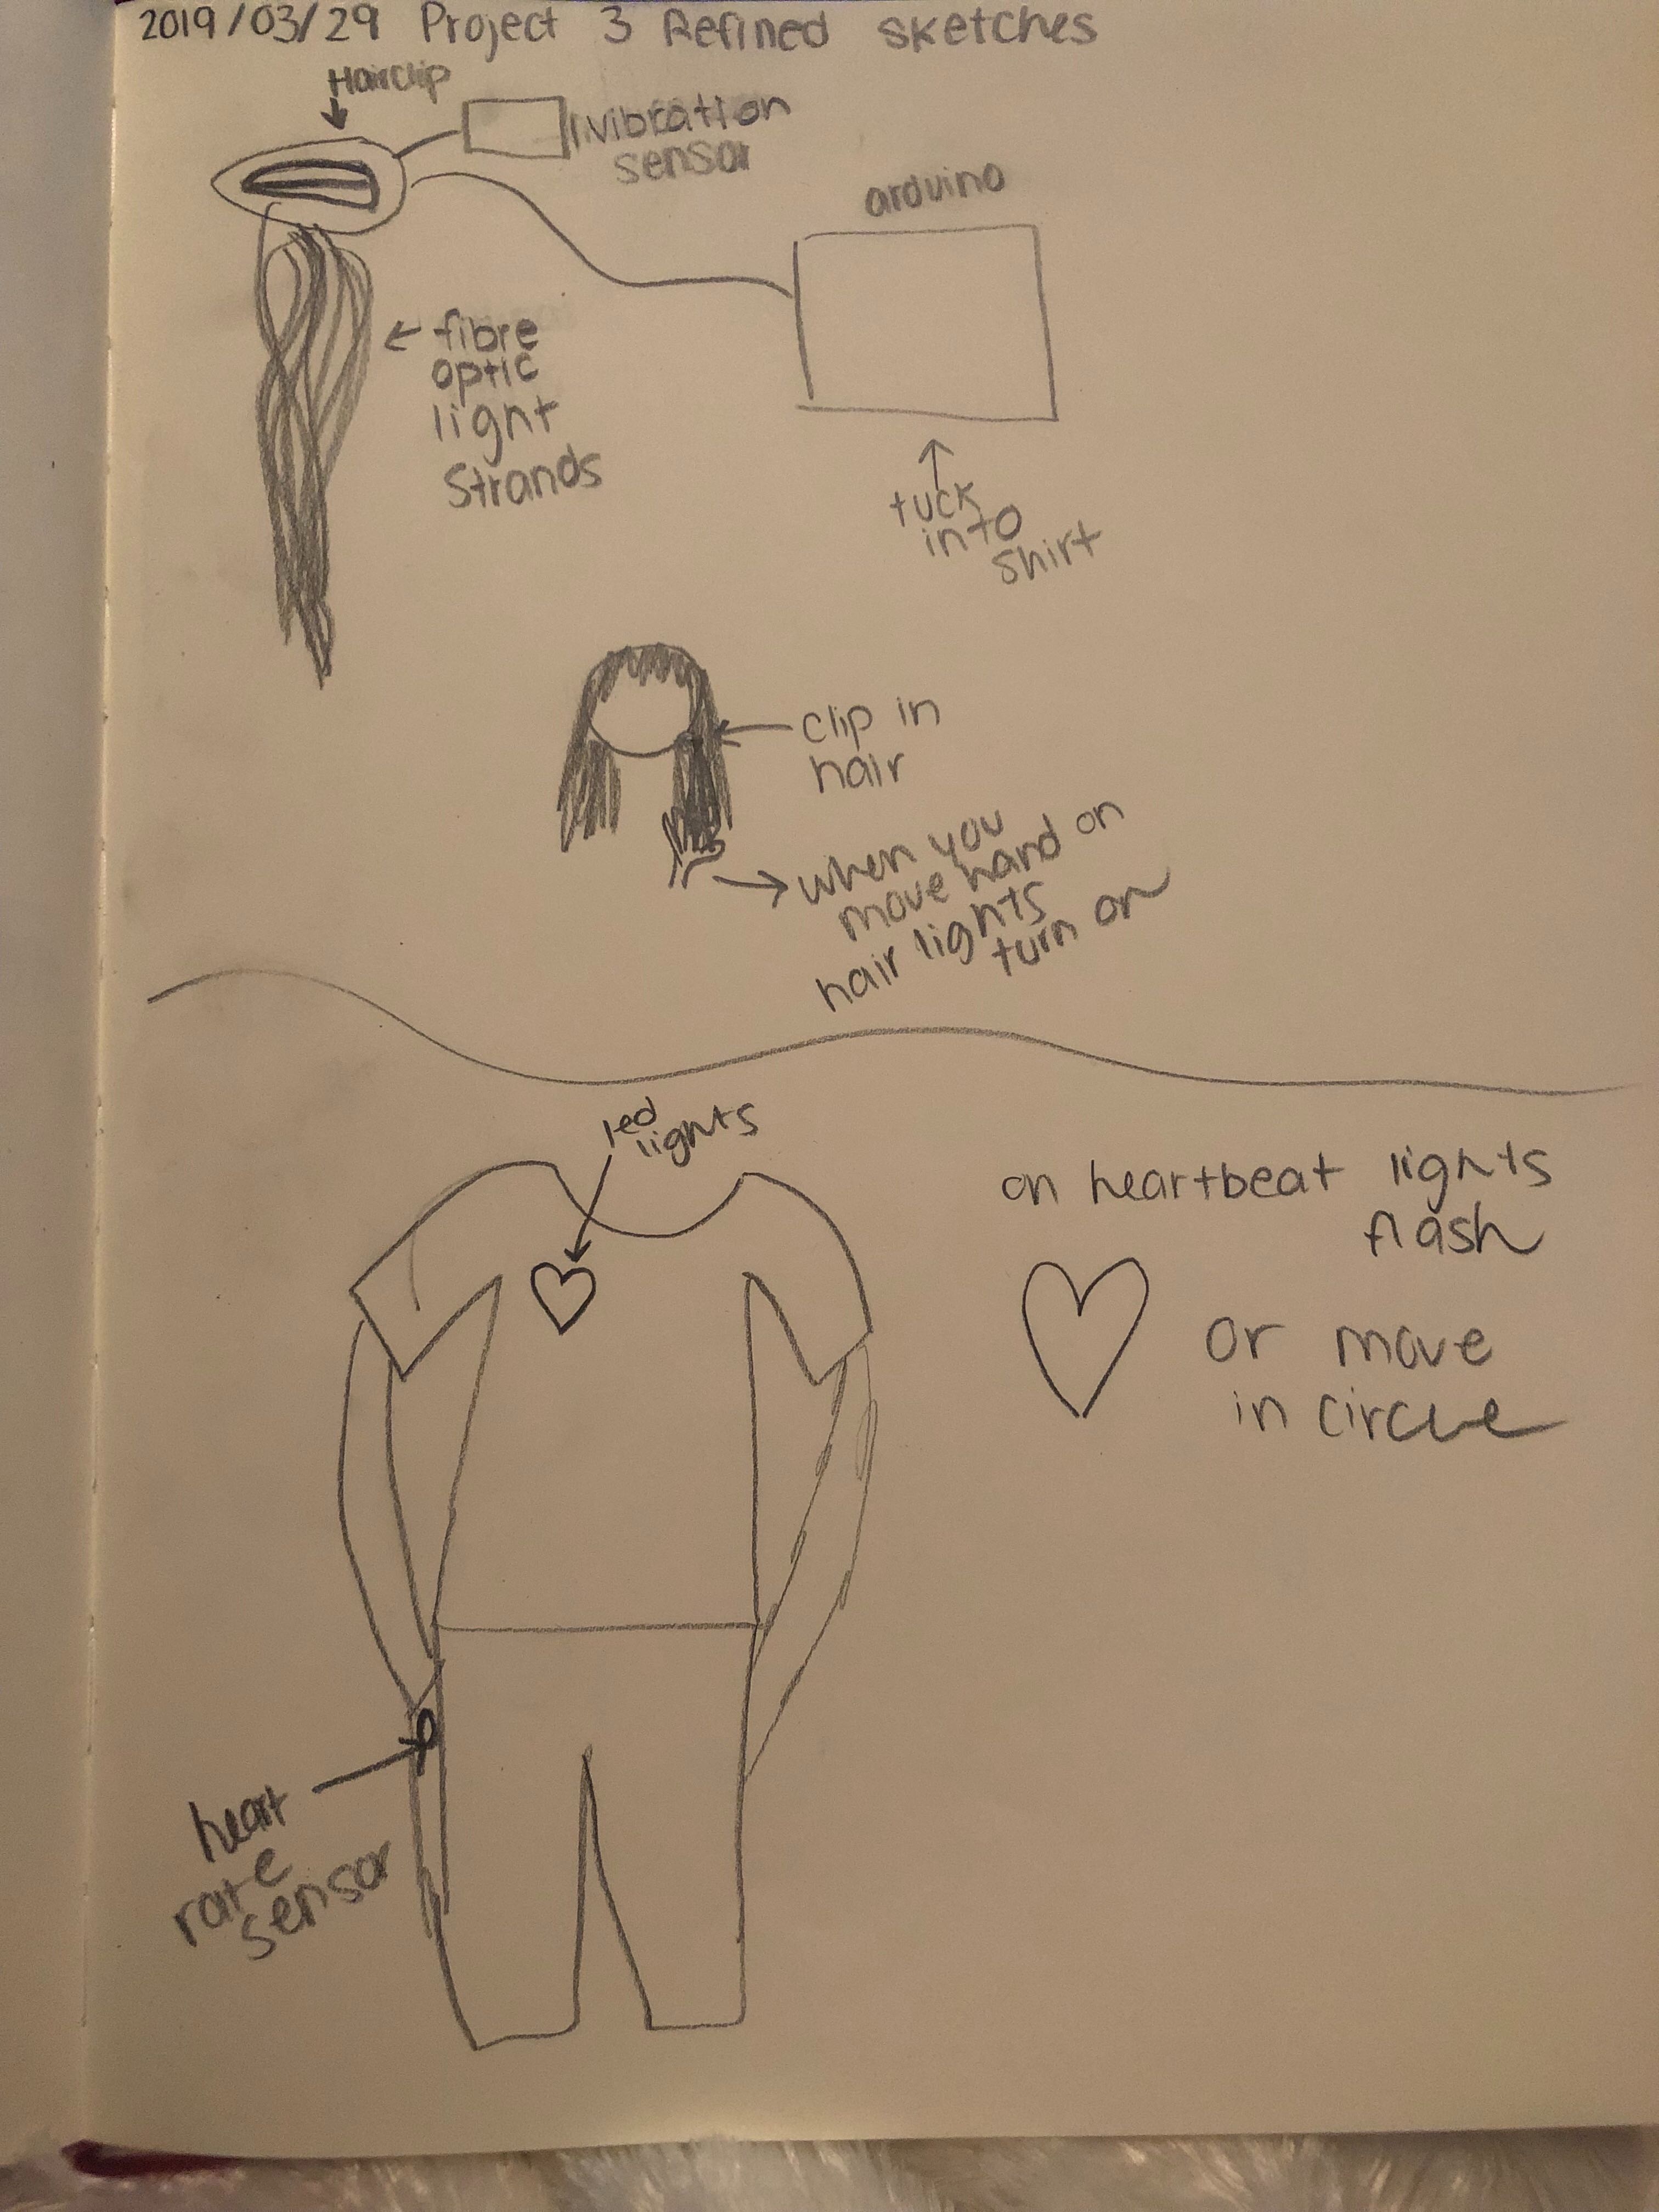 2019/03/29 Project 3 Refined sketches
Hairclip
vibration
sensor
arduino
fibre
optic
light
strands
tuck
into
shirt
clip in
hair
when you
move hand on
hair lights
turn on
led
lights
on heartbeat lights
flash
or move
in circle
heart
rate
sensor